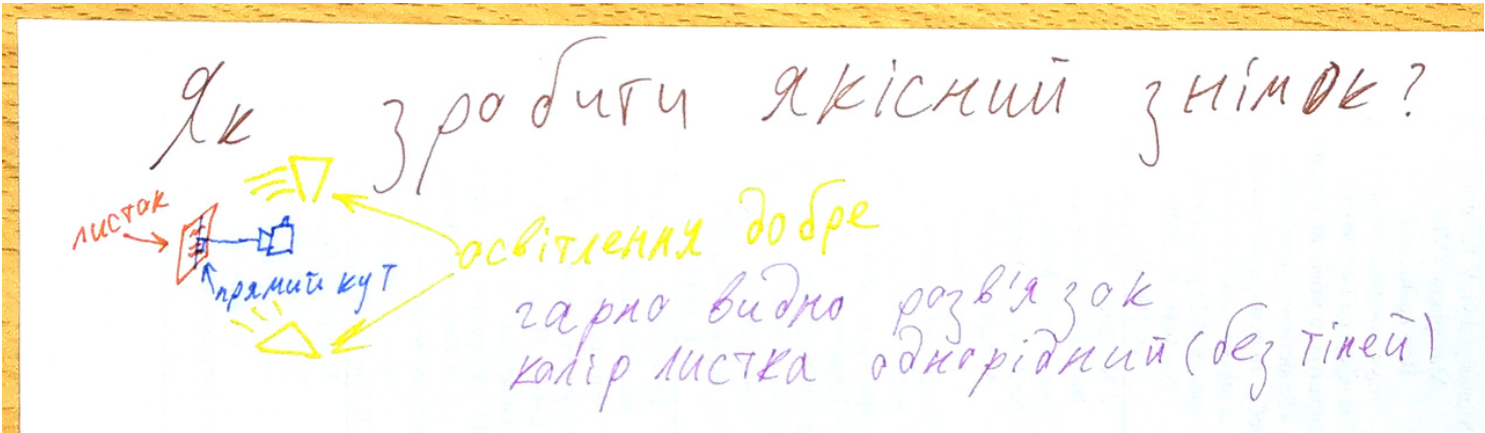 Як зробити якісний знімок?
листок
прямий кут
освітлення добре
гарно видно розв'язок
колір листка однорідний (без тіней)